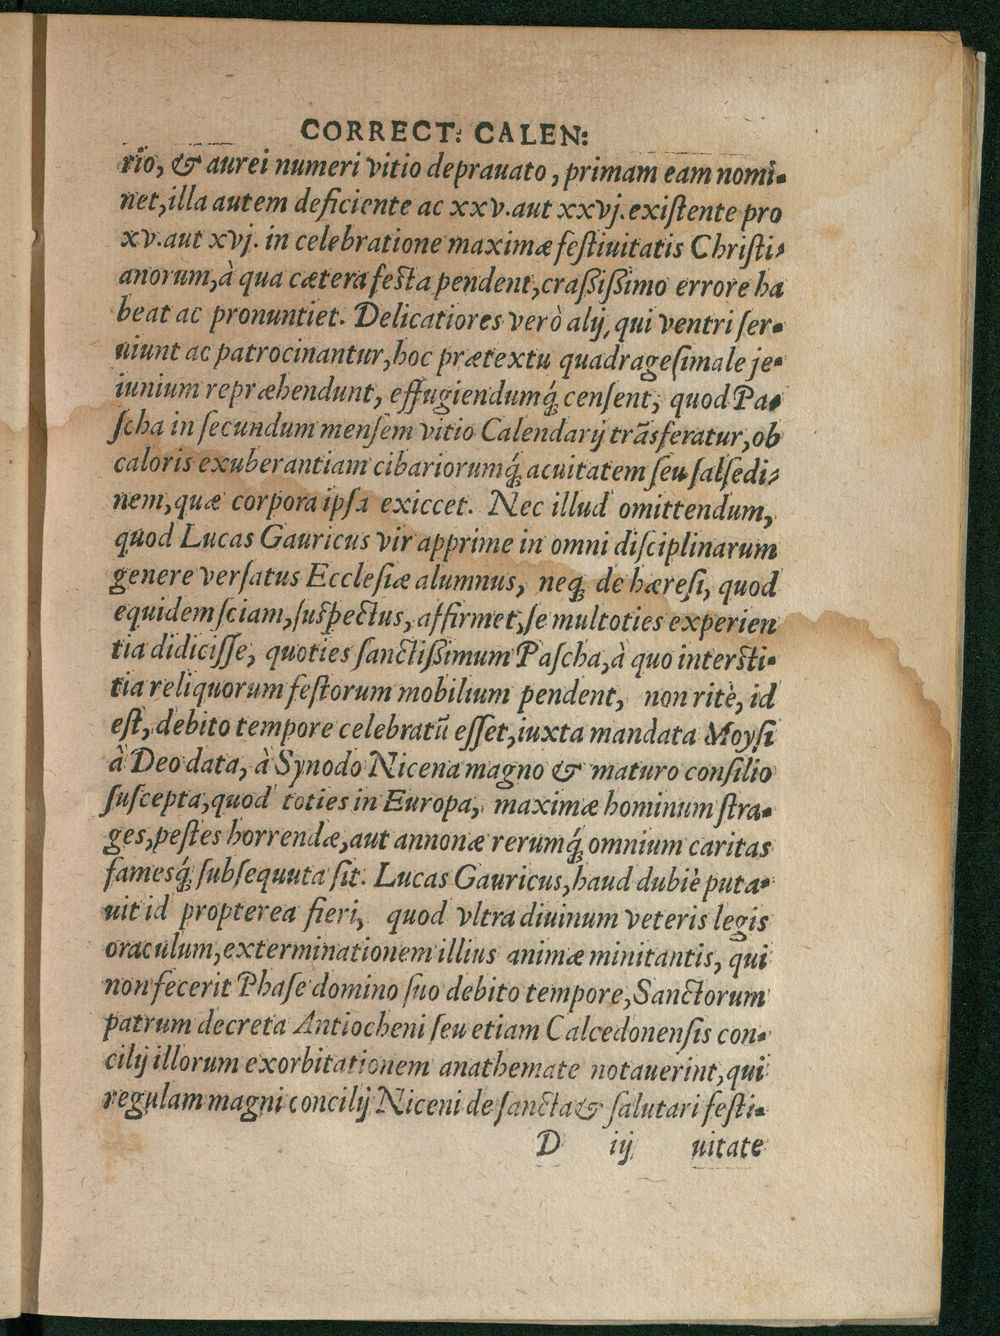 CORRECT: CALEN:
rio, & aurei numeri vitio deprauato, primam eam nomi-
net, illa autem deficiente ac xxv. aut xxvj. existente pro
xv. aut xvj. in celebratione maximæ festiuitatis Christi-
anorum, à qua cætera festa pendent, crassissimo errore ha
beat ac pronuntiet. Delicatiores verò alij, qui ventri ser-
uiunt ac patrocinantur, hoc prætextu quadragesimale je-
iunium repræhendunt, effugiendumq́; censent, quod Pa-
scha in secundum mensem vitio Calendarij trãsferatur, ob
caloris exuberantiam cibariorumq́; acuitatem seu salsedi-
nem, quæ corpora ipsa exiccet. Nec illud omittendum,
quod Lucas Gauricus vir apprime in omni disciplinarum
genere versatus Ecclesiæ alumnus, neq; de hæresi, quod
equidem sciam, suspectus, affirmet, se multoties experien
tia didicisse, quoties sanctissimum Pascha, à quo intersti-
tia reliquorum festorum mobilium pendent, non ritè, id
est, debito tempore celebratũ esset, iuxta mandata Moysi
à Deo data, à Synodo Nicena magno & maturo consilio
suscepta, quod toties in Europa, maximæ hominum stra-
ges, pestes horrendæ, aut annonæ rerumq́; omnium caritas
famesq́; subsequuta sit. Lucas Gauricus, haud dubiè puta-
uit id propterea fieri, quod vltra diuinum veteris legis
oraculum, exterminationem illius animæ minitantis, qui
non fecerit Phase domino suo debito tempore, Sanctorum
patrum decreta Antiocheni seu etiam Calcedonensis con-
cilij illorum exorbitationem anathemate notauerint, qui
regulam magni concilij Niceni de sancta & salutari festi-
D iij uitate